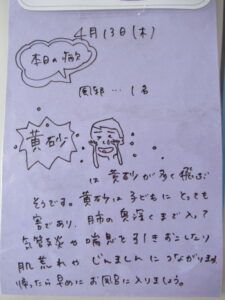 4月13日(木)
本日の病欠
風邪… 1名
黄砂
は 黄砂が多く飛ぶ
そうです。黄砂は子どもに とっても
害であり、肺の奥深くまで入って
気管支炎や喘息を引きおこしたり
肌荒れや じんましんにつながります。
帰ったら早めにお風呂に入りましょう。